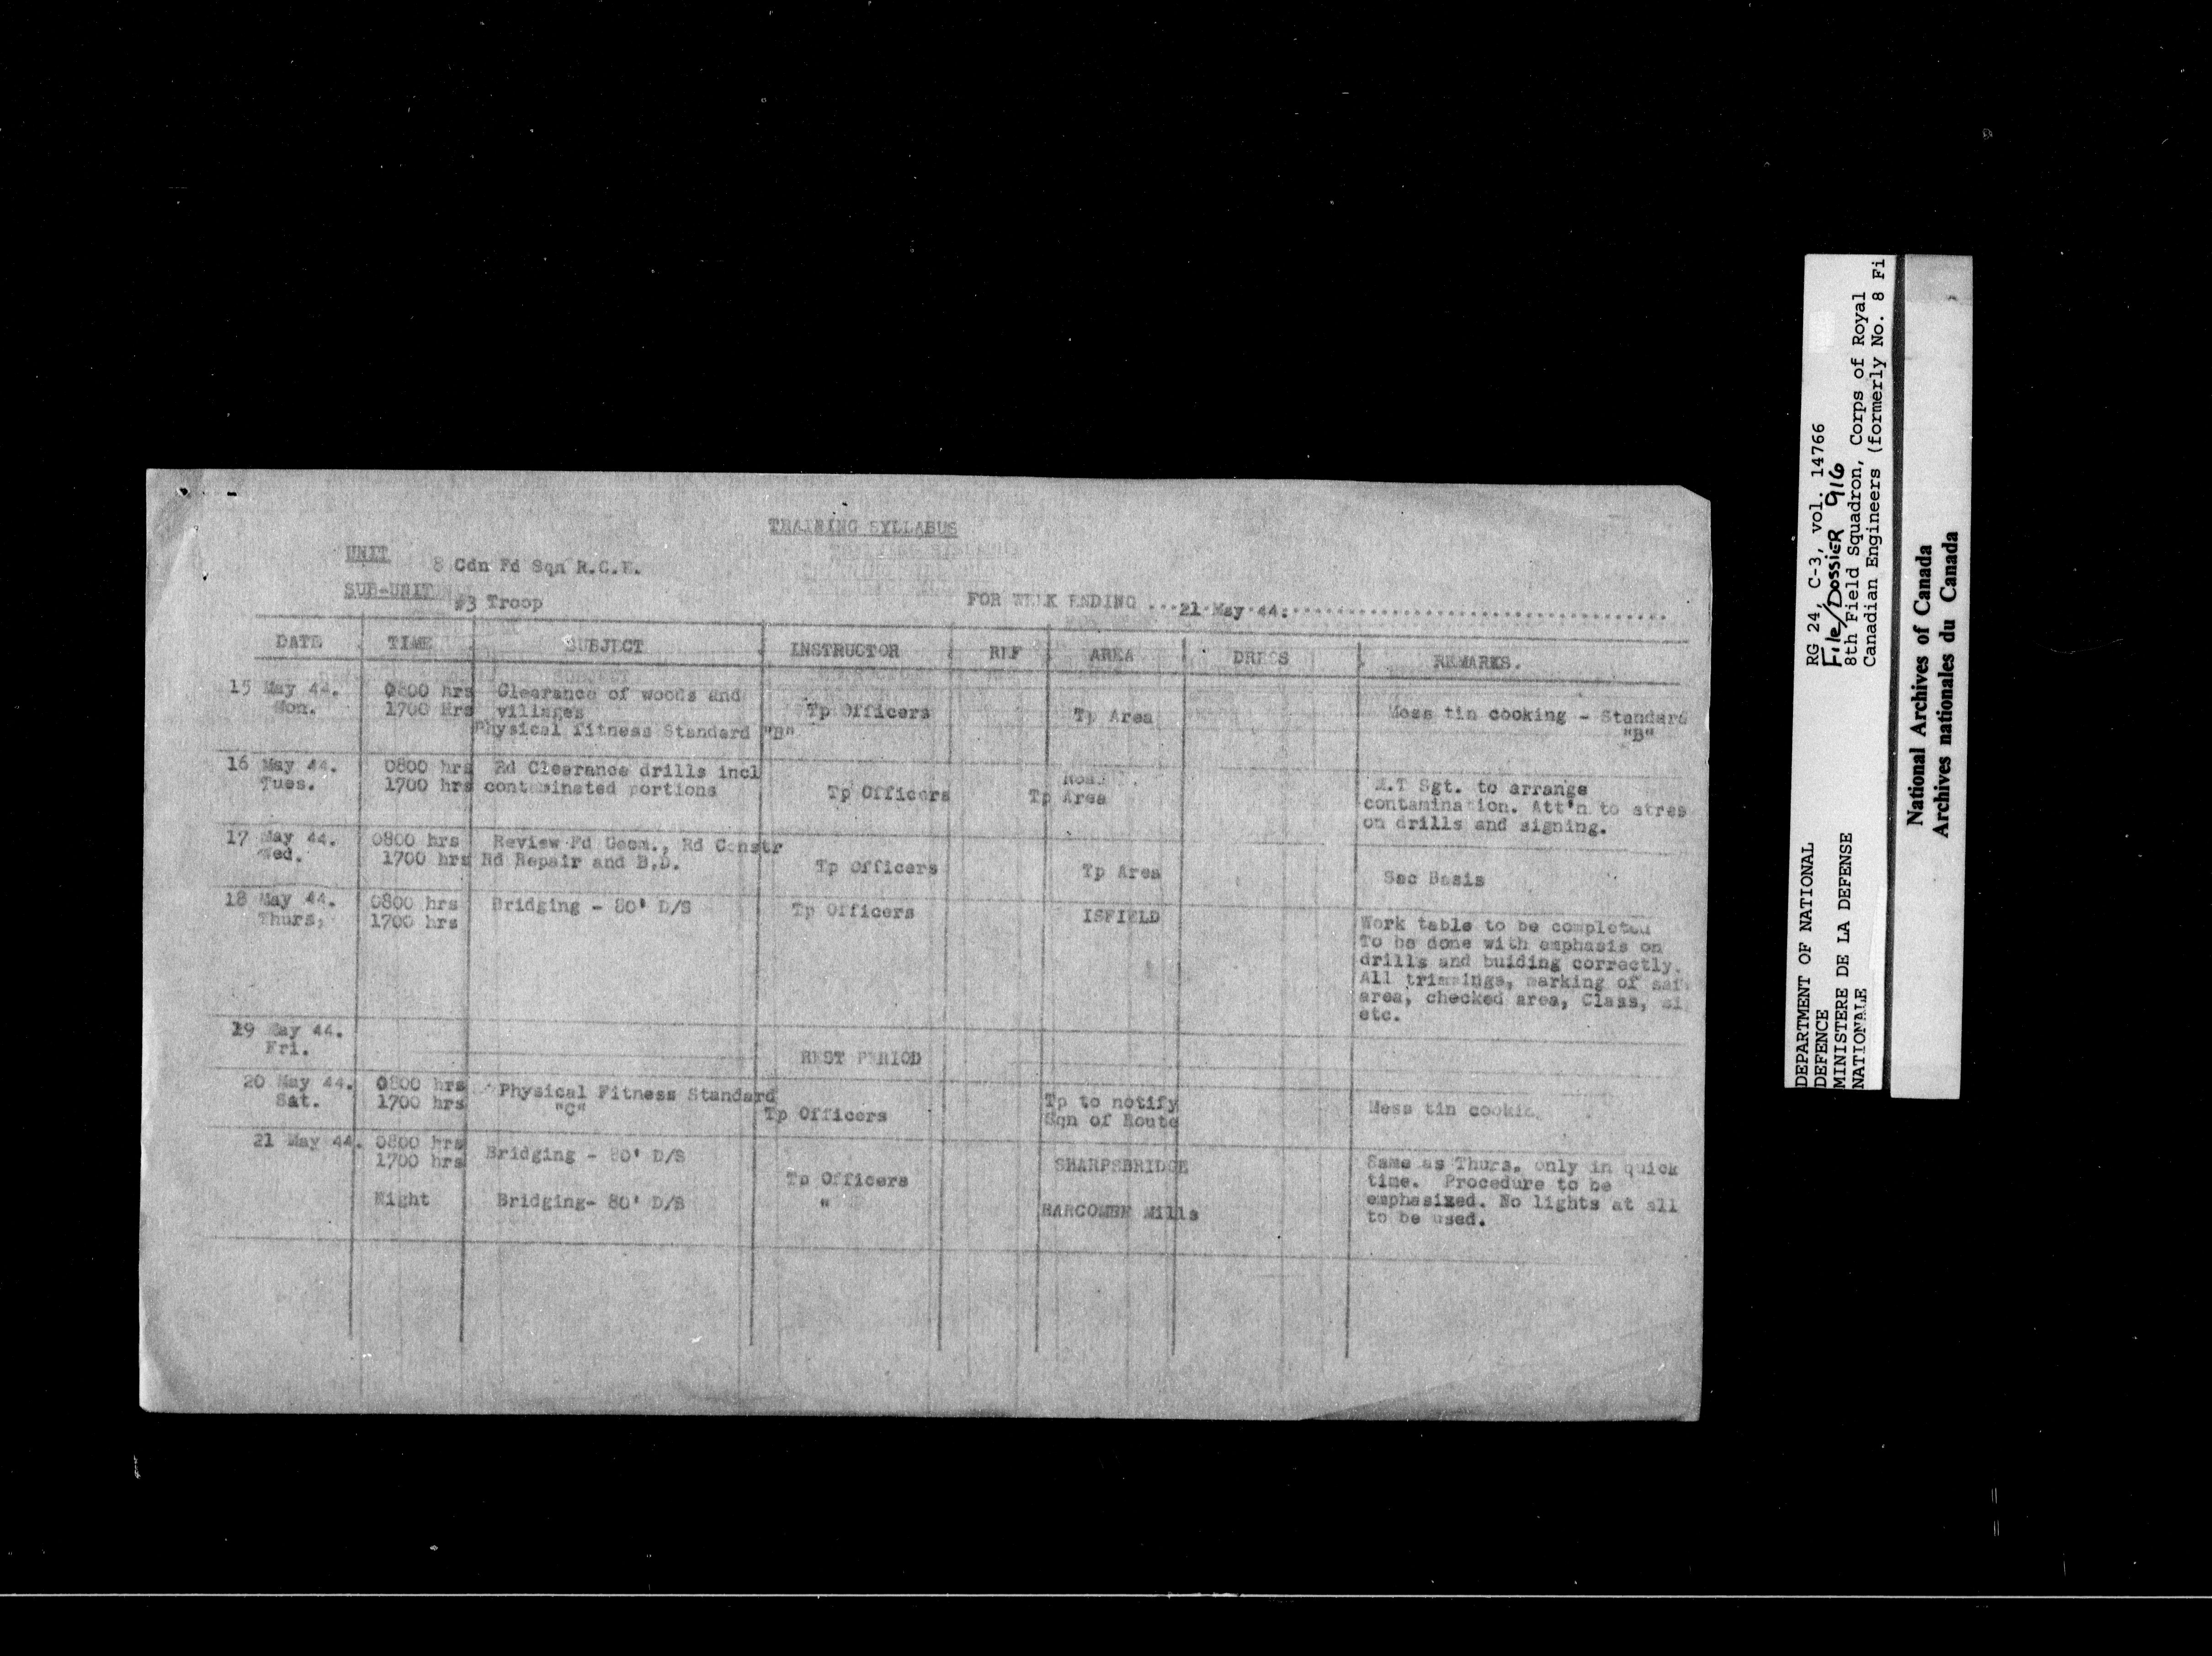 TRAINING SYLLABUS
UNIT 8 Cdn Fd Sqn R.C.E.
SUB-UNIT #3 Troop
FOR WEEK ENDING ...21 May 44.
DATE TIME SUBJECT INSTRUCTOR REF AREA DRESS REMARKS.
15 May 44. 0800 hrs Clearance of woods and
Mon. 1700 Hrs villages Tp Officers Tp Area Mess tin cooking - Standard
Physical Fitness Standard "B" "B"
16 May 44. 0800 hrs Rd Clearance drills incl
Tues. 1700 hrs contaminated portions Tp Officers Tp Area M.T Sgt. to arrange
contamination. Att'n to stres
on drills and signing.
17 May 44. 0800 hrs Review Fd Geom., Rd Constr
Wed. 1700 hrs Rd Repair and B.D. Tp Officers Tp Area Sec Basis
18 May 44. 0800 hrs Bridging - 80' D/S Tp Officers ISFIELD
Thurs, 1700 hrs
Work table to be completed
To be done with emphasis on
drills and buiding correctly.
All trimmings, marking of saf
area, checked area, Class, si
etc.
19 May 44.
Fri. REST PERIOD
20 May 44. 0800 hrs Physical Fitness Standard Tp to notify Mess tin cookin
Sat. 1700 hrs "C" Tp Officers Sqn of Route
21 May 44. 0800 hrs Bridging - 80' D/S SHARPSBRIDGE Same as Thurs. only in quick
1700 hrs Tp Officers time. Procedure to be
Night Bridging- 80' D/S " BARCOMBE Mills emphasized. No lights at all
to be used.
DEPARTMENT OF NATIONAL
DEFENCE
MINISTERE DE LA DEFENSE
NATIONALE
RG 24, C-3, vol. 14766
File/DOSSIER 916
8th Field Squadron, Corps of Royal
Canadian Engineers (formerly No. 8 Fi
National Archives of Canada
Archives nationales du Canada